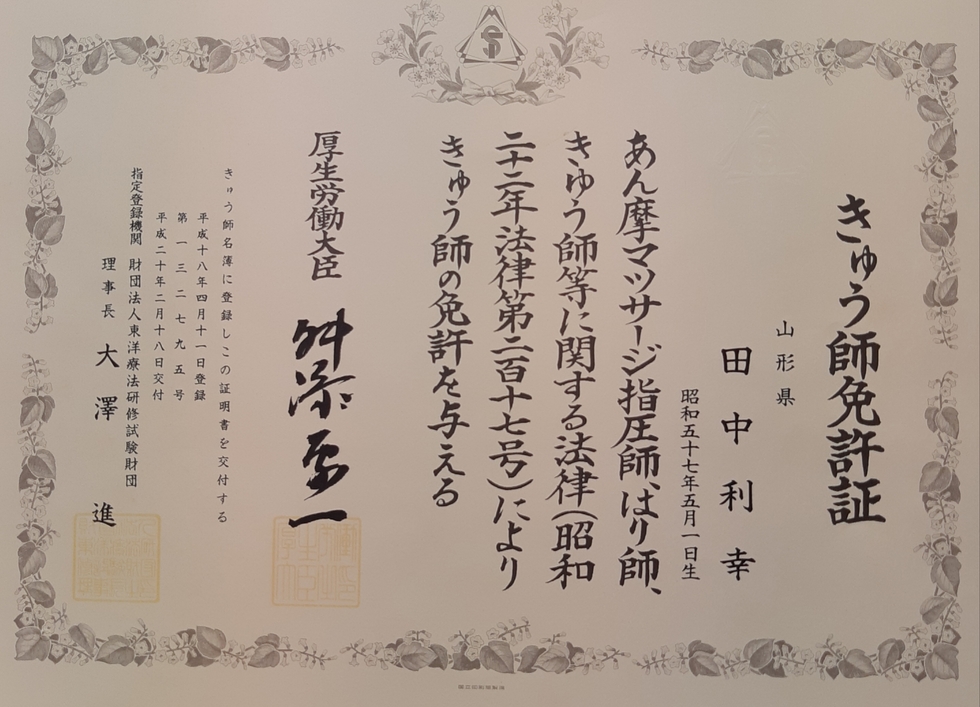 きゅう師免許証
山形県
田中利幸
昭和五十七年五月一日生
あん摩マツサージ指圧師、はり師、
きゆう師等に関する法律（昭和
二十二年法律第二百十七号）により
きゅう師の免許を与える
厚生労働大臣
舛添要一
きゅう師名簿に登録しこの証明書を交付する
平成十八年四月十一日登録
第一三二七九五号
平成二十年二月十八日交付
指定登録機関 財団法人東洋療法研修試験財団
理事長 大澤進